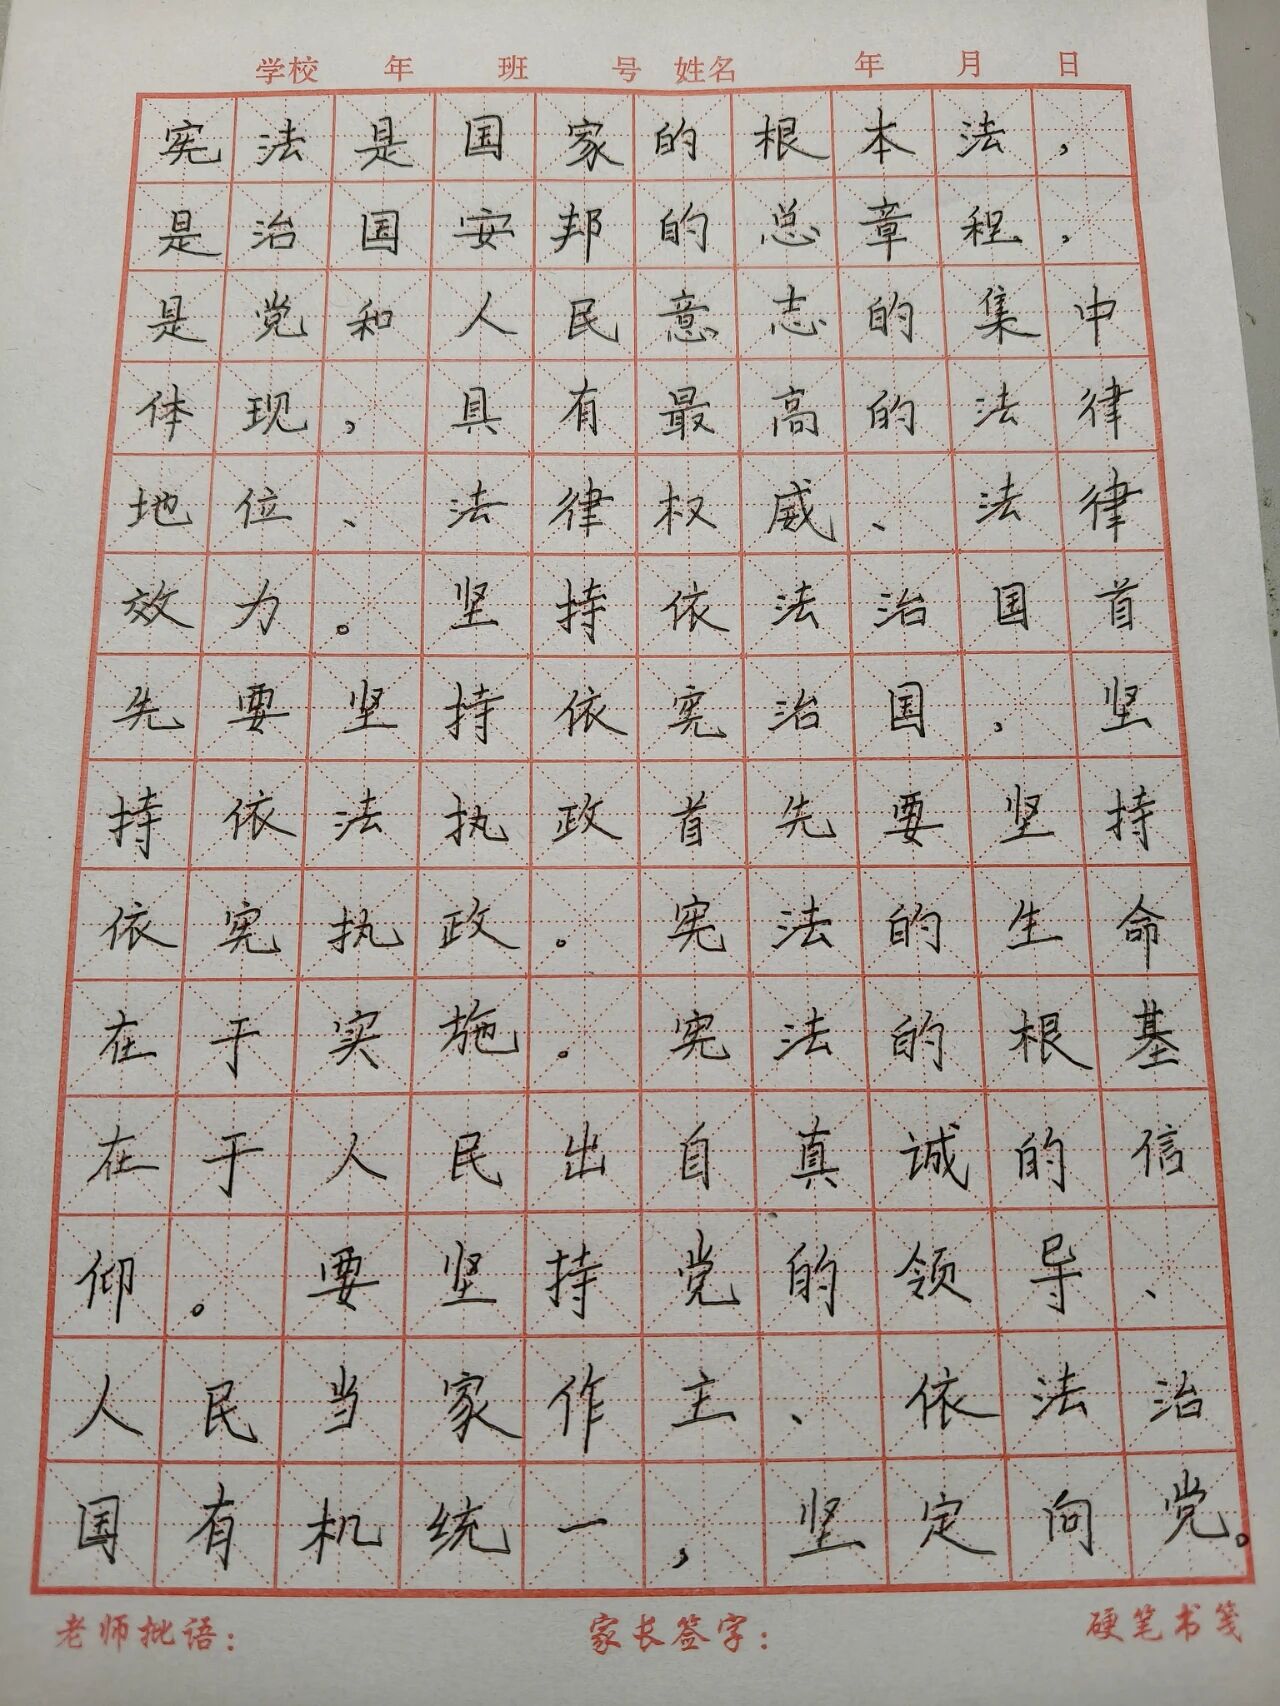 学校 年 班 号 姓名 年 月 日
宪法是国家的根本法，
是治国安邦的总章程，
是党和人民意志的集中
体现，具有最高的法律
地位、法律权威、法律
效力。坚持依法治国首
先要坚持依宪治国，坚
持依法执政首先要坚持
依宪执政。宪法的生命
在于实施。宪法的根基
在于人民出自真诚的信
仰。要坚持党的领导、
人民当家作主、依法治
国有机统一，坚定向党。
老师批语： 家长签字： 硬笔书笺